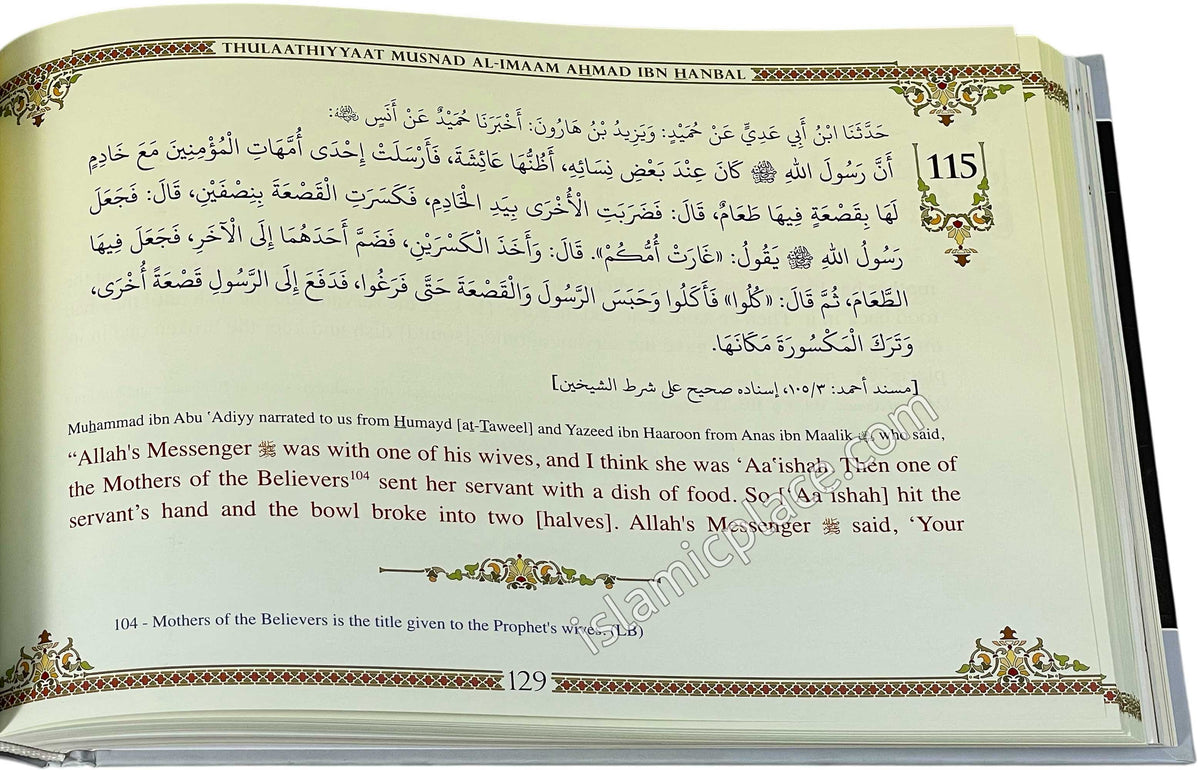 THULAATHIYYAAT MUSNAD AL-IMAAM AHMAD IBN HANBAL
115
حَدَّثَنَا ابْنُ أَبِي عَدِيٍّ عَنْ حُمَيْدٍ: وَيَزِيدُ بْنُ هَارُونَ: أَخْبَرَنَا حُمَيْدٌ عَنْ أَنَسٍ ﷺ:
أَنَّ رَسُولَ اللهِ ﷺ كَانَ عِنْدَ بَعْضِ نِسَائِهِ، أَظُنُّهَا عَائِشَةَ، فَأَرْسَلَتْ إِحْدَى أُمَّهَاتِ الْمُؤْمِنِينَ مَعَ خَادِمِ
لَهَا بِقَصْعَةٍ فِيهَا طَعَامٌ، قَالَ: فَضَرَبَتِ الْأُخْرَى بِيَدِ الْخَادِمِ، فَكَسَرَتِ الْقَصْعَةَ بِنِصْفَيْنِ، قَالَ: فَجَعَلَ
رَسُولُ اللهِ ﷺ يَقُولُ: «غَارَتْ أُمُّكُمْ». قَالَ: وَأَخَذَ الْكَسْرَيْنِ، فَضَمَّ أَحَدَهُمَا إِلَى الْآخَرِ، فَجَعَلَ فِيهَا
الطَّعَامَ، ثُمَّ قَالَ: «كُلُوا» فَأَكَلُوا وَحَبَسَ الرَّسُولَ وَالْقَصْعَةَ حَتَّى فَرَغُوا، فَدَفَعَ إِلَى الرَّسُولِ قَصْعَةً أُخْرَى،
وَتَرَكَ الْمَكْسُورَةَ مَكَانَهَا.
[مسند أحمد: ١٠٥/٣، إسناده صحيح على شرط الشيخين]
Muhammad ibn Abu ‘Adiyy narrated to us from Humayd [at-Taweel] and Yazeed ibn Haaroon from Anas ibn Maalik who said,
“Allah's Messenger ﷺ was with one of his wives, and I think she was ‘Aa‘ishah. Then one of
the Mothers of the Believers104 sent her servant with a dish of food. So [‘Aa‘ishah] hit the
servant’s hand and the bowl broke into two [halves]. Allah's Messenger ﷺ said, ‘Your
104 - Mothers of the Believers is the title given to the Prophet's wives. (LB)
129
islamicplace.com